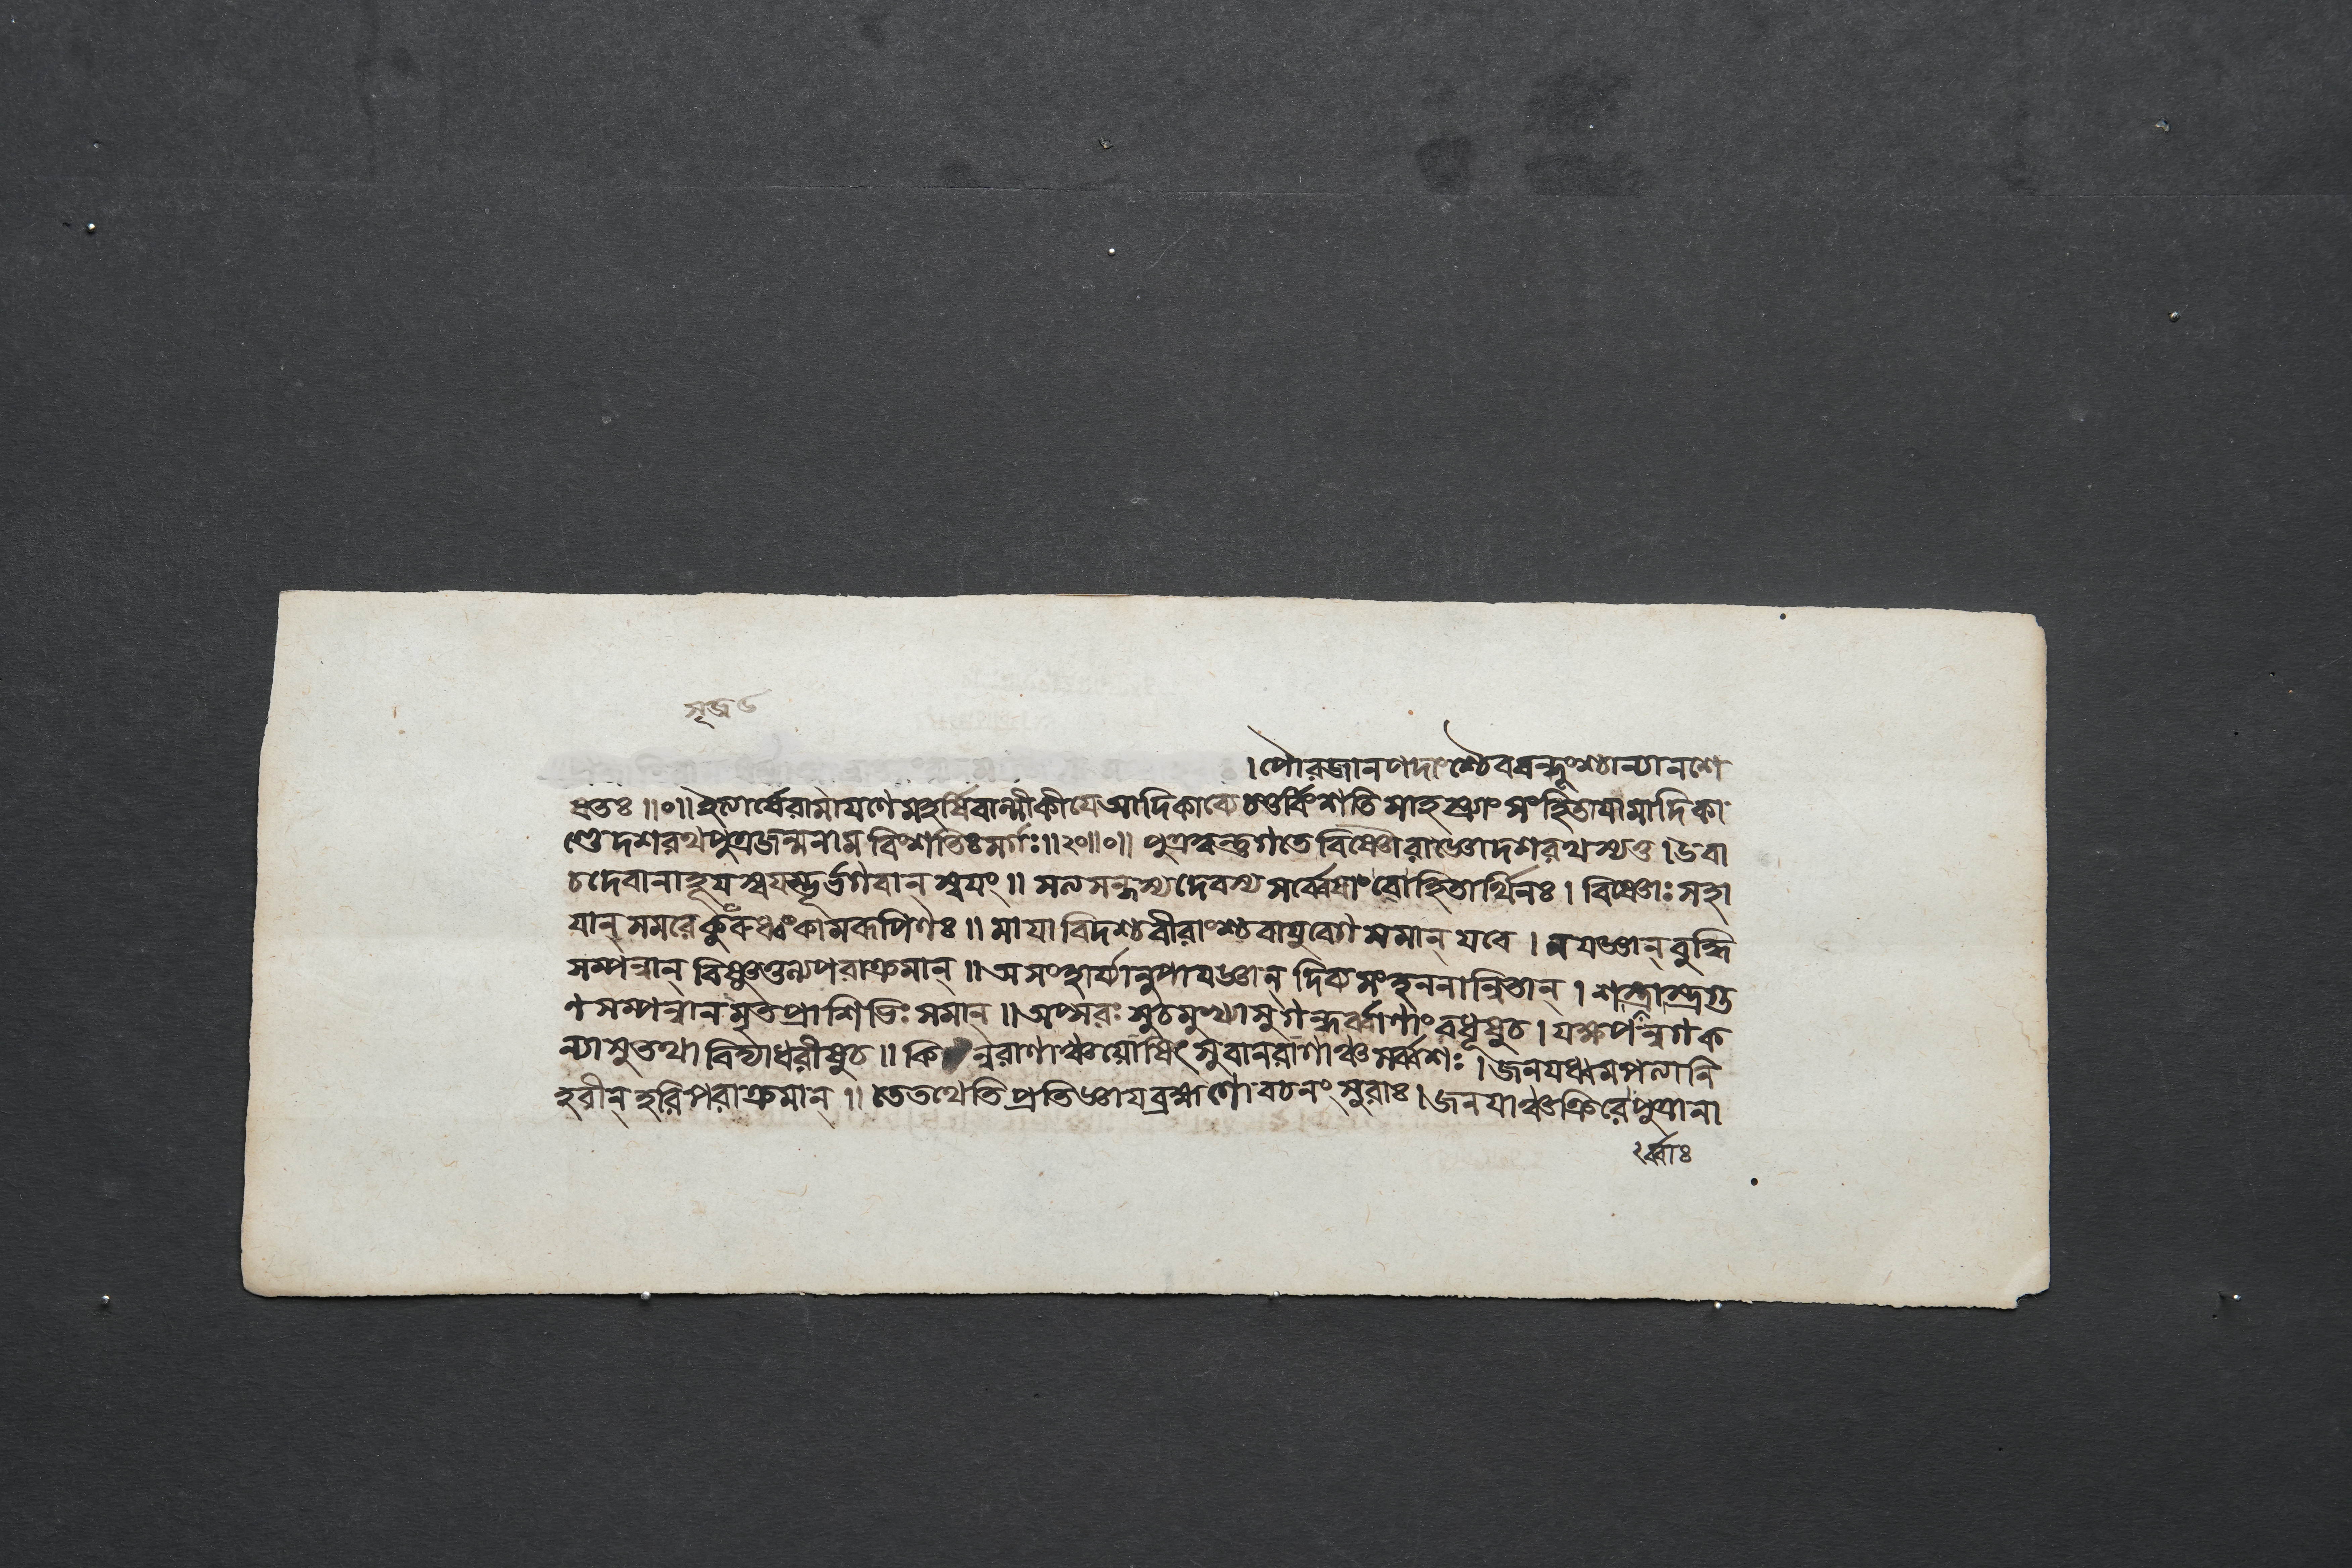 সৃজধ্ব
। পৌরজানপদাংশ্চৈববন্ধূংশ্চান্যানশে
ষতঃ ॥০॥ ইত্যার্ষেরামাযণেমহর্ষিবাল্মীকীযেআদিকাব্যেচতুর্ব্বিংশতিসাহস্র্যাং সংহিতাযামাদিকা
ণ্ডেদশরথপুত্রজন্মনাম বিংশতিঃসর্গঃ॥২০॥০॥ পুত্রত্বন্তুগতেবিষ্ণৌরাজ্ঞোদশরথস্যতু । উবা
চদেবানাহূযস্বযম্ভূর্ভগবান্ স্বযং ॥ সত্যসন্ধস্যদেবস্যসর্ব্বেষাংবোহিতার্থিনঃ । বিষ্ণোঃসহা
যান্ সমরেকুরুধ্বংকামরূপিণঃ ॥ মাযাবিদশ্চবীরাংশ্চবাযুবেগসমান্ যবে । নযজ্ঞান্ বুদ্ধি
সম্পন্নান্ বিষ্ণুতুল্যপরাক্রমান্ ॥ অসংহার্য্যানুপাযজ্ঞান্ দিব্যসংহননান্বিতান্ । শস্ত্রাস্ত্রগু
ণসম্পন্নানমৃতপ্রাশিভিঃসমান্ ॥ অপ্সরঃসুচমুখ্যাসুগন্ধর্ব্বাণাংবধূষুচ । যক্ষপন্নগক
ন্যাসুতথা বিদ্যাধরীষুচ ॥ কিন্নরাণাঞ্চযোষিৎসুবানরাণাঞ্চসর্ব্বশঃ । জনযধ্বমপত্যানি
হরীন্ হরিপরাক্রমান্ ॥ তেতথেতিপ্রতিজ্ঞাযব্রহ্মণোবচনং সুরাঃ । জনযাঞ্চক্রিরেপুত্রানা
র্ব্বাঃ